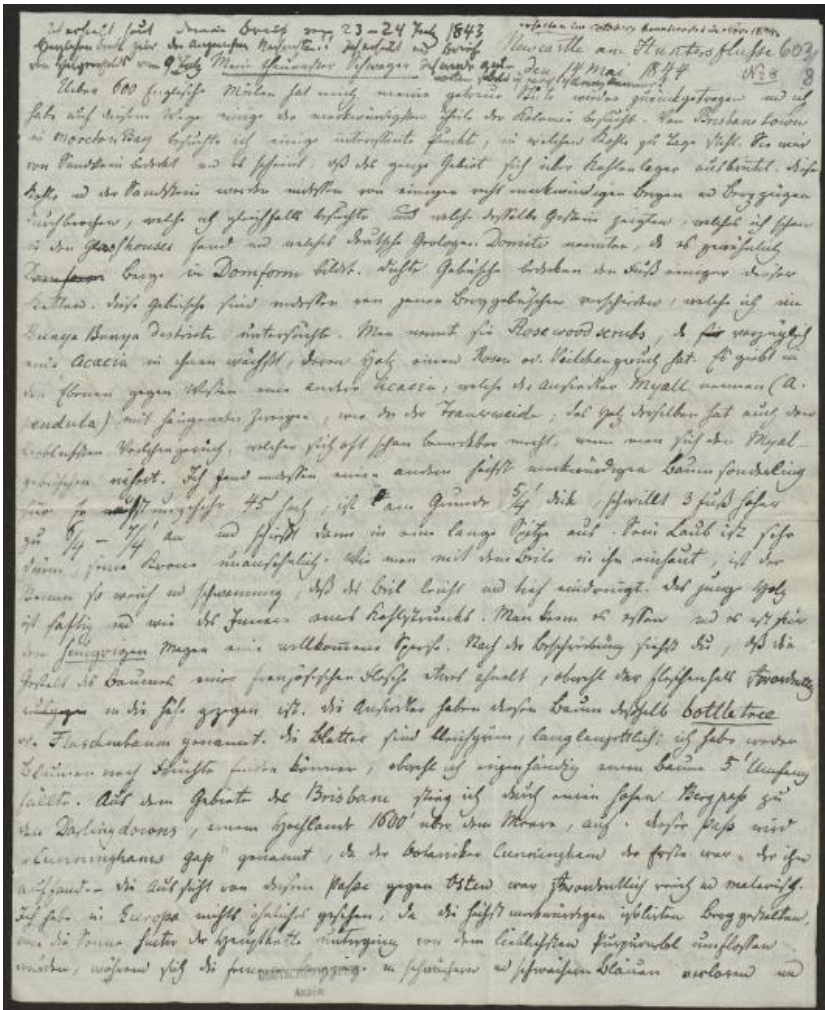 Ich erhielt heut deinen Brief vom 23 – 24 July 1843
Herzlichen Dank für die angenehmen Nachrichten!! Ich erhielt auch Brief
vom 9 July Mein theuerster Schwager
Newcastle am Huntersflusse 603/8
den 14 Mai 1844 No 8
Ueber 600 Englische Meilen hat mich meine getreue Stute wieder zurückgetragen und ich
habe auf diesem Wege einige der merkwürdigsten Theile der Kolonie besucht. Von Brisbane town
in Moreton Bay besuchte ich einige interessante Punkte, in welchen Kohle zu Tage steht. Sie war
von Sandstein bedeckt und es scheint, daß das ganze Gebiet sich über Kohlenlager ausbreitet. Diese
Kohle und der Sandstein werden indessen von einigen recht merkwürdigen Bergen und Bergzügen
durchbrochen, welche ich gleichfalls besuchte und welche dasselbe Gestein zeigten, welches ich schon
in den Glasshouses fand und welches deutsche Geologen Domite nennen, da es gewöhnlich
Berge in Domform bildet. Dichte Gebüsche bedecken den Fuß einiger dieser
Ketten. Diese Gebüsche sind indessen von jenen Berggebüschen verschieden, welche ich im
Bunya Bunya Districte untersuchte. Man nennt sie Rosewoodscrubs, da vorzüglich
eine Acacia in ihnen wächst, deren Holz einen Rosen od. Veilchengeruch hat. Es giebt in
den Ebenen gegen Westen eine andere Acacia, welche die Ansiedler Myall nennen (A.
pendula) mit hängenden Zweigen, wie die der Trauerweide; das Holz derselben hat auch den
lieblichsten Veilchengeruch, welcher sich oft schon bemerkbar macht, wenn man sich den Myal-
gebüschen nähert. Ich fand indessen einen andern höchst merkwürdigen Baumsonderling
hier. Er wächst ungefähr 45' hoch, ist am Grunde 5/4' dick, schwillt 3 Fuß höher
zu 6/4 – 7/4' an und schießt dann in eine lange Spitze aus. Sein Laub ist sehr
dünn, seine Krone unansehnlich. Wie man mit dem Beile in ihn einhaut, ist der
Stamm so weich und schwammig, daß das Beil leicht und tief eindringt. Das junge Holz
ist saftig und wie das Innere eines Kohlstrunks. Man kann es essen und es ist für
den hungrigen Magen eine willkommene Speise. Nach der Beschreibung siehst du, daß die
Gestalt des Baumes einer französischen Flasche etwas ähnelt, obwohl der Flaschenhals
in die Höhe gezogen ist. Die Ansiedler haben diesen Baum deshalb bottletree
oder Flaschenbaum genannt. Die Blätter sind bleichgrün, langlanzettlich; ich habe weder
Blumen noch Früchte finden können, obwohl ich eigenhändig einen Baum 5' Umfang
fällte. Aus dem Gebiete des Brisbane stieg ich durch einen hohen Bergpaß zu
den Darlingdowns, einem Hochlande 1600' über dem Meere, auf. Dieser Paß wird
„Cunninghams Gap" genannt, da der Botaniker Cunningham der Erste war, der ihn
auffand. – Die Aussicht von diesem Passe gegen Osten war reich und malerisch.
Ich habe in Europa nichts ähnliches gesehen, da die höchst merkwürdigen isolirten Berggestalten,
wie die Sonne hinter der Hauptkette unterging von dem lieblichsten Purpurroth umflossen
wurden, während sich die in schwächern und schwächern Bläuen verloren und